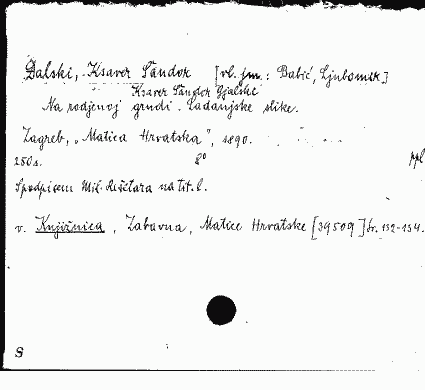 Đalski, Ksaver Šandor [vl. im.: Babić, Ljubomir]
Ksaver Šandor Gjalski
Na rodjenoj grudi. Ladanjske slike.
Zagreb, „Matica Hrvatska", 1890.
250 s. 8° ppl
S podpisom Mil. Rešetara na tit. l.
v. Knjižnica, Zabavna, Matice Hrvatske [39509] br. 132-134.
S